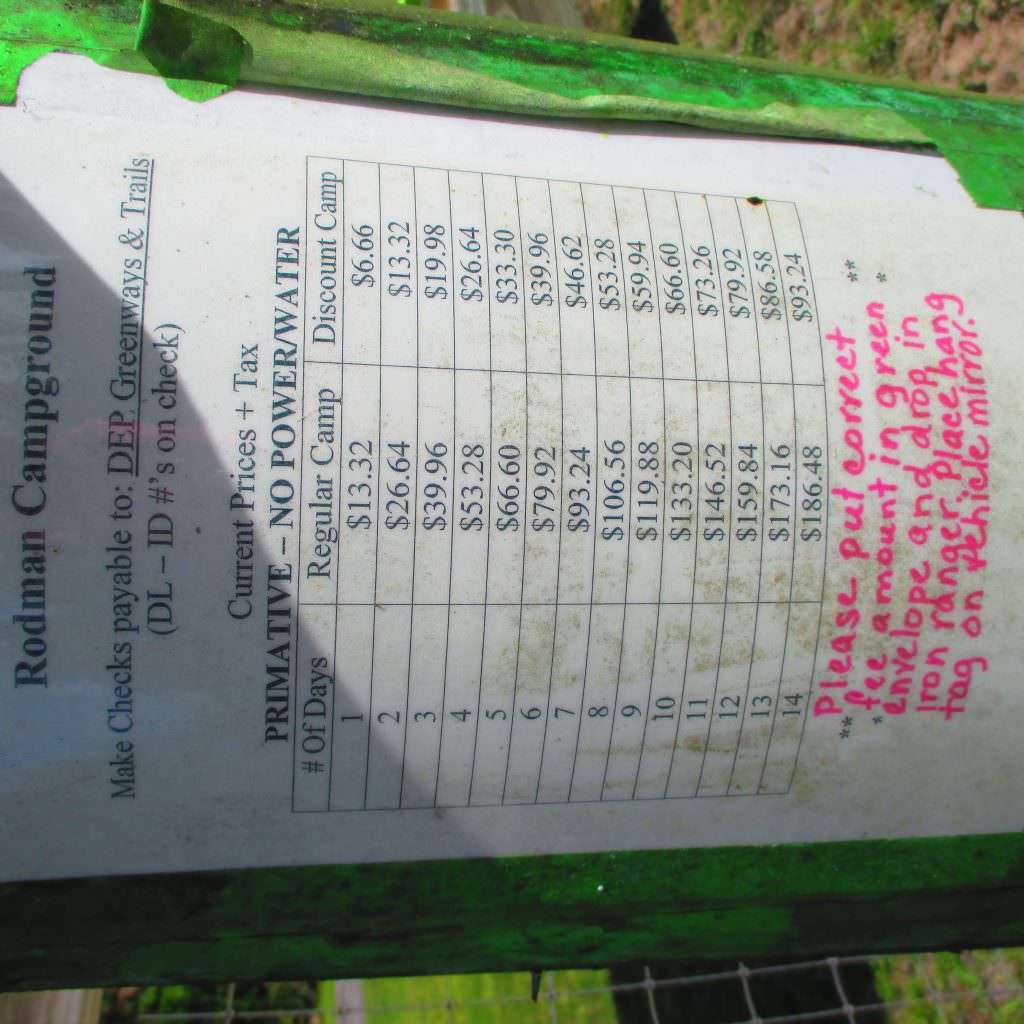 Rodman Campground
Make Checks payable to: DEP. Greenways & Trails
(DL – ID #'s on check)
Current Prices + Tax
PRIMATIVE – NO POWER/WATER
# Of Days Regular Camp Discount Camp
1 $13.32 $6.66
2 $26.64 $13.32
3 $39.96 $19.98
4 $53.28 $26.64
5 $66.60 $33.30
6 $79.92 $39.96
7 $93.24 $46.62
8 $106.56 $53.28
9 $119.88 $59.94
10 $133.20 $66.60
11 $146.52 $73.26
12 $159.84 $79.92
13 $173.16 $86.58
14 $186.48 $93.24
Please put correct
** fee amount in green **
* envelope and drop in *
Iron ranger. Place hang
tag on vehicle mirror.